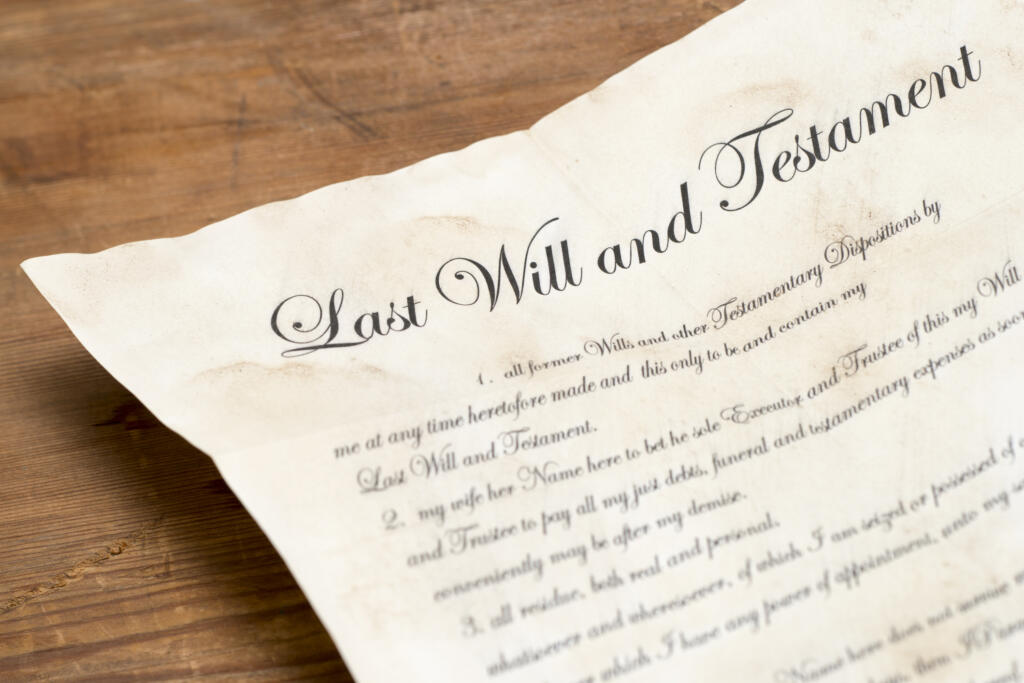 Last Will and Testament
1. all former Wills and other Testamentary Dispositions by
me at any time heretofore made and this only to be and contain my
Last Will and Testament.
2. my wife her Name here to bet he sole Executor and Trustee of this my Will
and Trustee to pay all my just debts, funeral and testamentary expenses as soon
conveniently may be after my demise.
3. all residue, both real and personal,
whatsoever and wheresoever, of which I am seized or possessed of
which I have any power of appointment, unto my
Name here does not
then